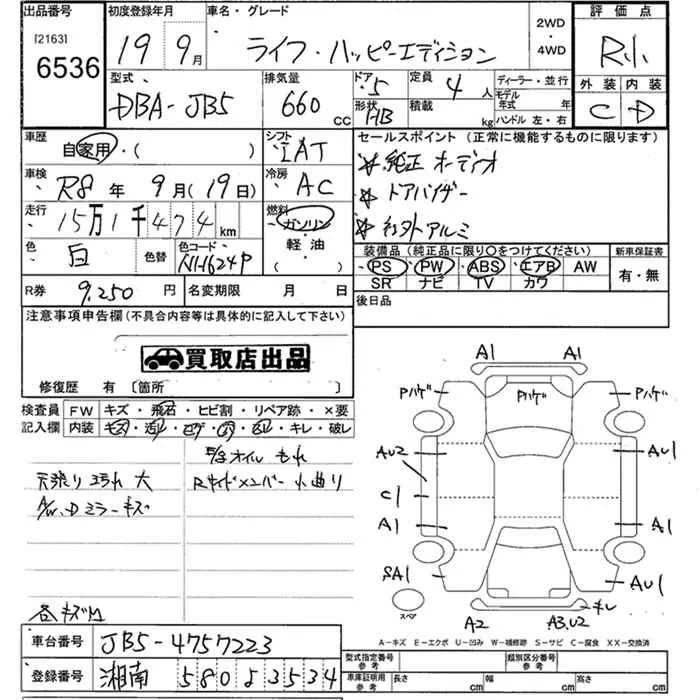 出品番号 初度登録年月 車名・グレード 2WD・4WD 評価点
[2163]
6536 19 9月 ライフ・ハッピーエディション R小
型式 排気量 ドア 定員 ディーラー・並行 外装 内装
DBA-JB5 660 CC 5 4人 モデル年式 年 C D
形状 積載 ハンドル 左・右
HB kg
車歴 シフト セールスポイント (正常に機能するものに限ります)
自家用・( ) IAT ☆純正オーディオ
車検 冷房 ☆ドアバイザー
R8年 9月(19日) AC ☆社外アルミ
走行 燃料
15万1千474km ガソリン・軽油
色 色替 色コード 装備品 (純正品に限り○をつけてください) 新車保証書
白 NH624P PS PW ABS エアB AW 有・無
SR ナビ TV カワ
R券 9,250円 名変期限 月 日 後日品
注意事項申告欄(不具合内容等は具体的に記入して下さい)
買取店出品
修復歴 有 〔箇所 〕
検査員 FW キズ・飛石・ヒビ割・リペア跡・×要
記入欄 内装 キレ・破レ
オイルもれ
天張り 大 Rサイドメンバー小曲り
ミラーキズ
各キズ凹
A1 A1
Pハゲ Pハゲ Pハゲ
AU2 AU1
C1
A1 A1
SA1 AU1
スペア A2 A3,U2 キレ
A-キズ E-エクボ U-凹み W-補修跡 S-サビ C-腐食 XX-交換済
車台番号 JB5-4757223
登録番号 湘南 580 3534
型式指定番号 参考 類別区分番号 参考
車庫証明用 参考 長さ cm 幅 cm 高さ cm